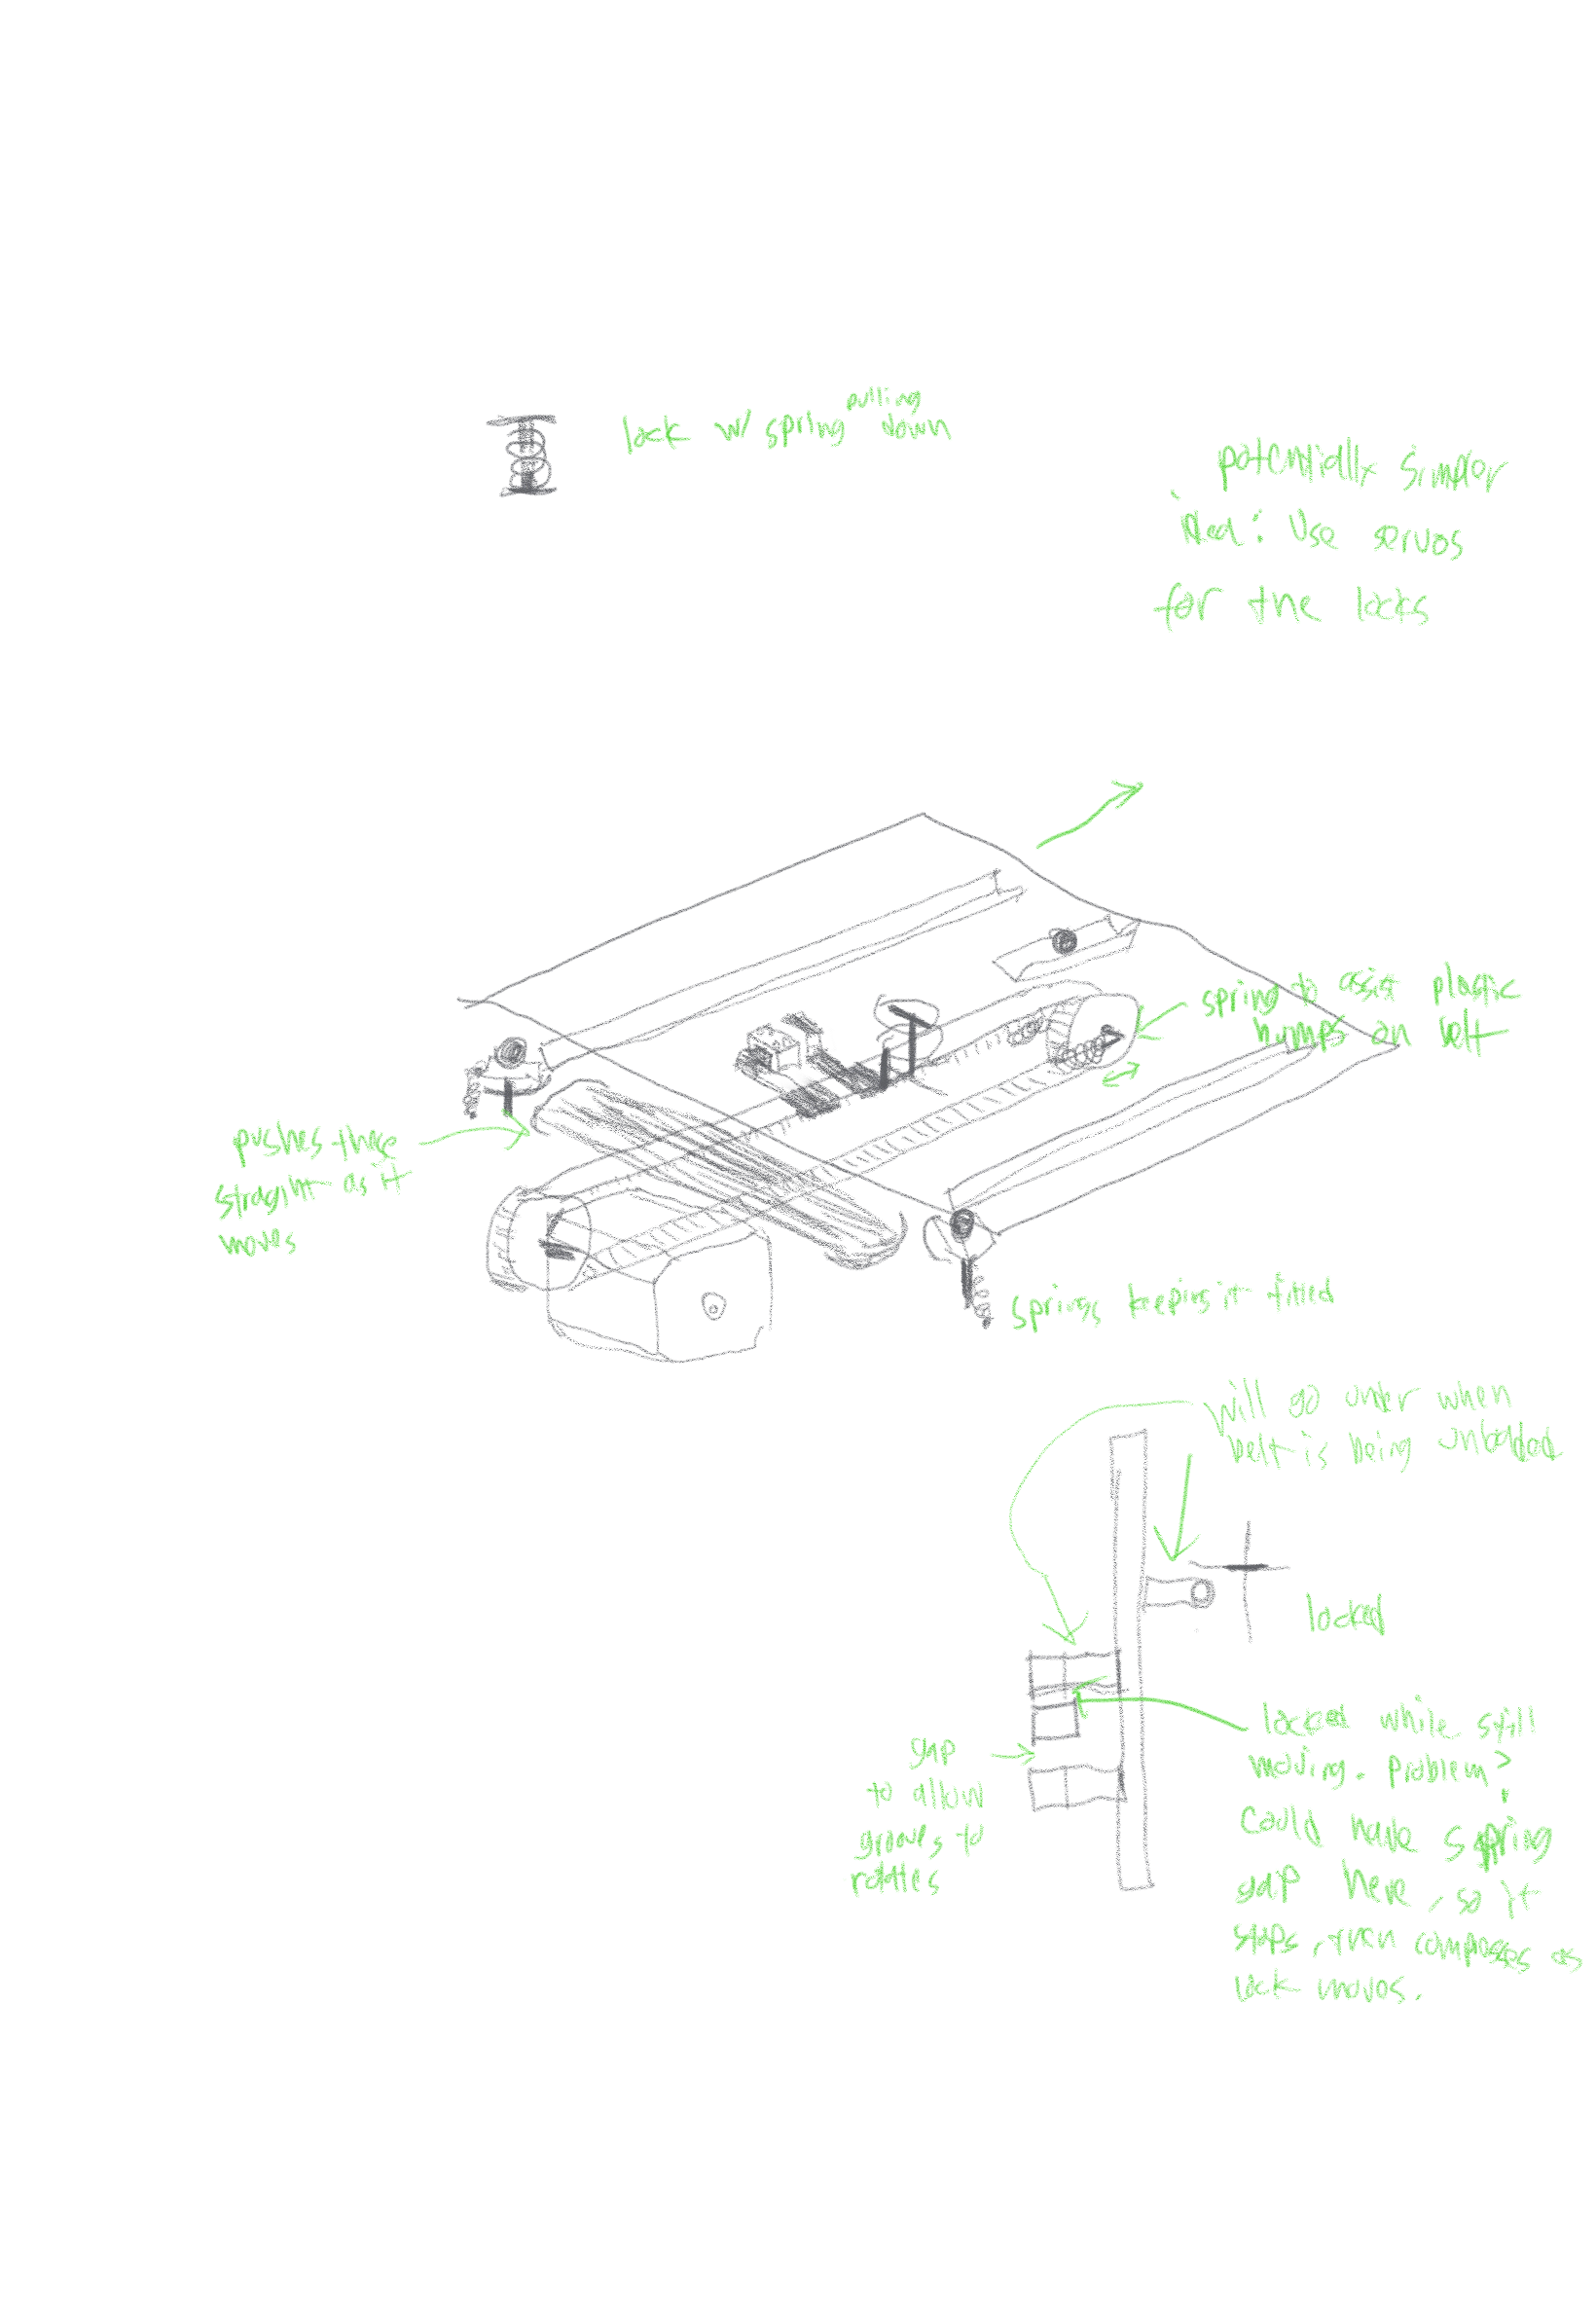 lock w/ spring pulling down
potentially simpler
idea: Use servos
for the locks
spring to assist plastic
humps on belt
pushes these
straight as it
moves
springs keeping it tilted
will go under when
belt is being unloaded
locked
gap
to allow
grooves to
rotates
locked while still
moving. problem?
Could have spring
gap here, so it
stops, then compresses as
lock moves.